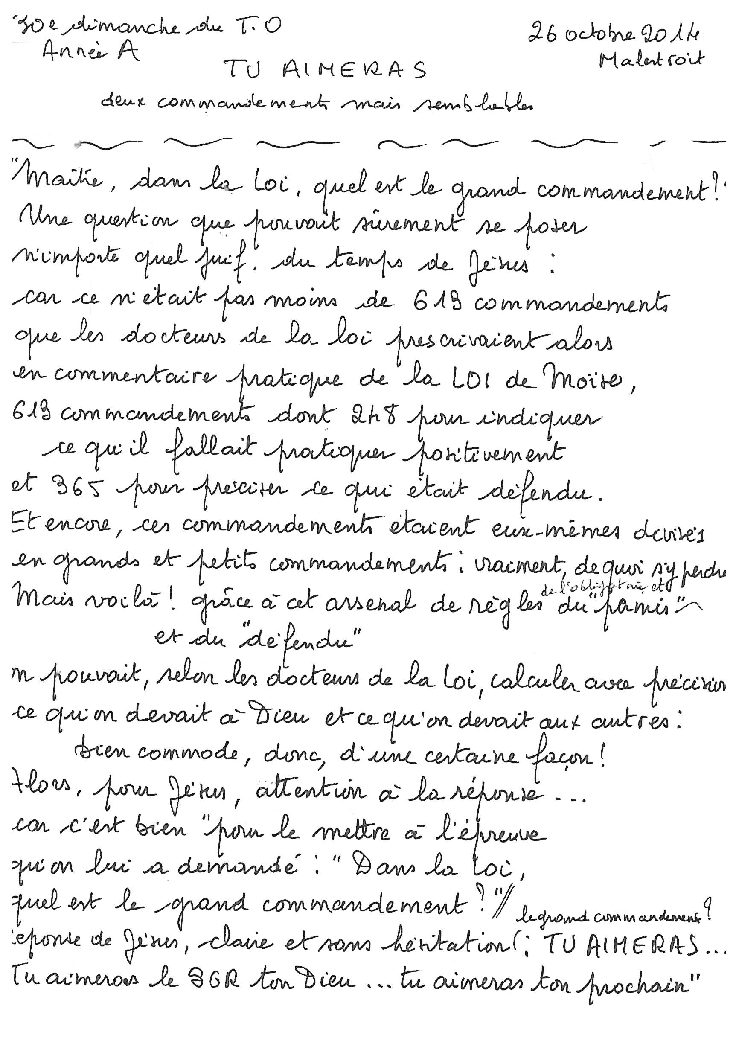 30e dimanche du T.O
26 octobre 2014
Année A
Malestroit
TU AIMERAS
deux commandements mais semblables
"Maître, dans la Loi, quel est le grand commandement?"
Une question que pouvait sûrement se poser
n'importe quel juif. du temps de Jésus :
car ce n'était pas moins de 613 commandements
que les docteurs de la loi prescrivaient alors
en commentaire pratique de la LOI de Moïse,
613 commandements dont 248 pour indiquer
ce qu'il fallait pratiquer positivement
et 365 pour préciser ce qui était défendu.
Et encore, ces commandements étaient eux-mêmes divisés
en grands et petits commandements : vraiment, de quoi s'y perdre
Mais voilà ! grâce à cet arsenal de règles de l'obligatoire et du "permis"
et du "défendu"
on pouvait, selon les docteurs de la Loi, calculer avec précision
ce qu'on devait à Dieu et ce qu'on devait aux autres :
bien commode, donc, d'une certaine façon !
Alors, pour Jésus, attention à la réponse ...
car c'est bien "pour le mettre à l'épreuve
qu'on lui a demandé : "Dans la Loi,
quel est le grand commandement ?" // le grand commandement ?
réponse de Jésus, claire et sans hésitation : TU AIMERAS ...
Tu aimeras le SGR ton Dieu ... tu aimeras ton prochain"